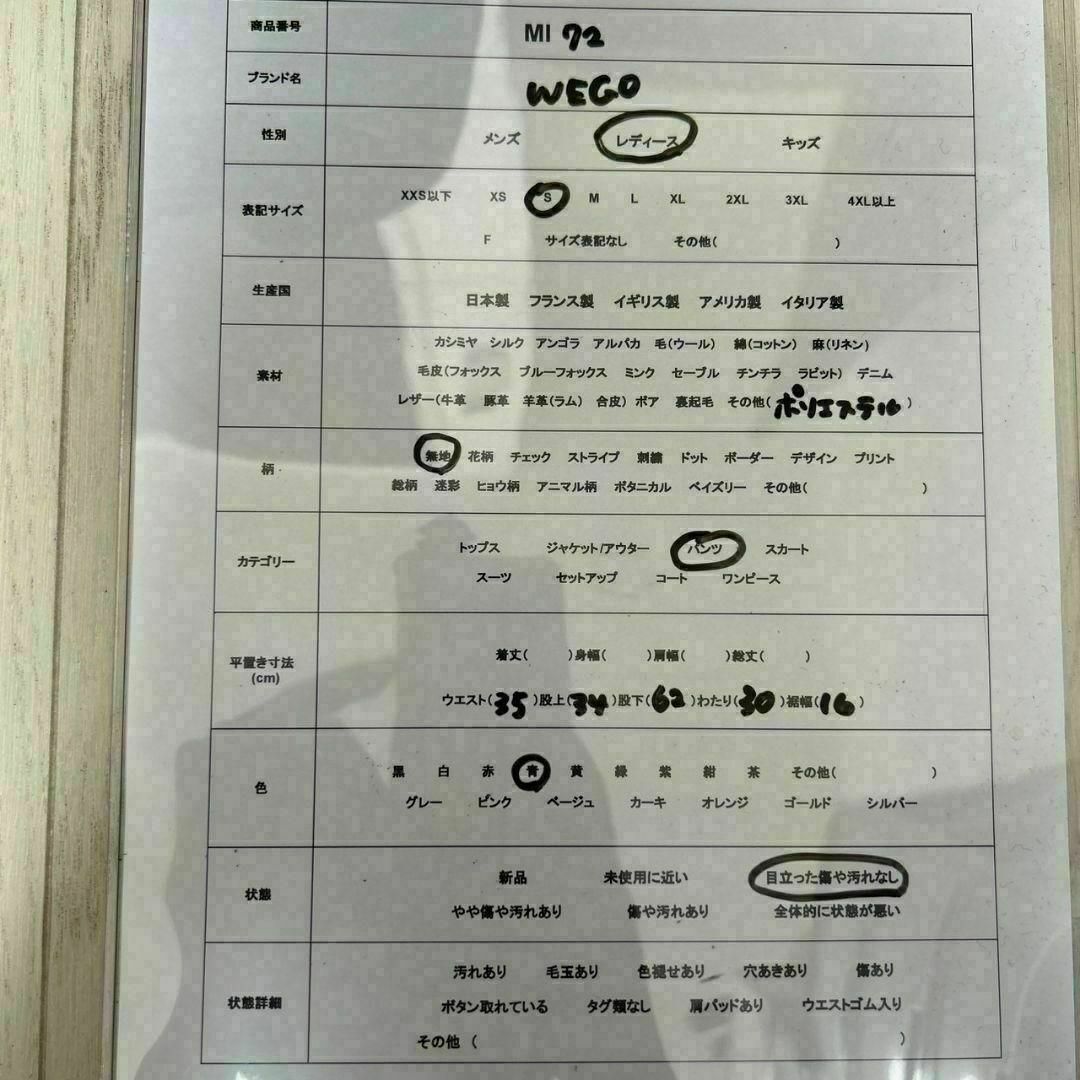 商品番号 MI 72
ブランド名 WEGO
性別 メンズ レディース キッズ
表記サイズ XXS以下 XS S M L XL 2XL 3XL 4XL以上
F サイズ表記なし その他( )
生産国 日本製 フランス製 イギリス製 アメリカ製 イタリア製
カシミヤ シルク アンゴラ アルパカ 毛(ウール) 綿(コットン) 麻(リネン)
素材 毛皮(フォックス ブルーフォックス ミンク セーブル チンチラ ラビット) デニム
レザー(牛革 豚革 羊革(ラム) 合皮) ボア 裏起毛 その他(ポリエステル)
柄 無地 花柄 チェック ストライプ 刺繍 ドット ボーダー デザイン プリント
総柄 迷彩 ヒョウ柄 アニマル柄 ボタニカル ペイズリー その他( )
カテゴリー トップス ジャケット/アウター パンツ スカート
スーツ セットアップ コート ワンピース
平置き寸法 着丈( )身幅( )肩幅( )総丈( )
(cm) ウエスト(35)股上(34)股下(62)わたり(30)裾幅(16)
色 黒 白 赤 青 黄 緑 紫 紺 茶 その他( )
グレー ピンク ベージュ カーキ オレンジ ゴールド シルバー
状態 新品 未使用に近い 目立った傷や汚れなし
やや傷や汚れあり 傷や汚れあり 全体的に状態が悪い
汚れあり 毛玉あり 色褪せあり 穴あきあり 傷あり
状態詳細 ボタン取れている タグ類なし 肩パッドあり ウエストゴム入り
その他 ( )